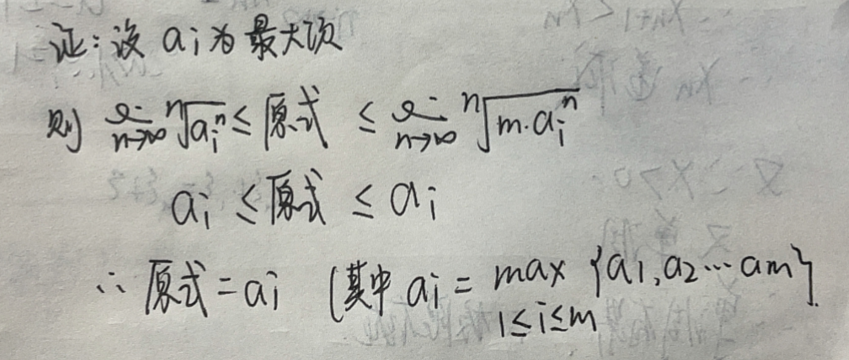 证：设 aᵢ 为最大项
则 lim n→∞ ⁿ√aᵢⁿ ≤ 原式 ≤ lim n→∞ ⁿ√m·aᵢⁿ
aᵢ ≤ 原式 ≤ aᵢ
∴ 原式 = aᵢ (其中 aᵢ = max 1≤i≤m {a₁, a₂ ⋯ aₘ}